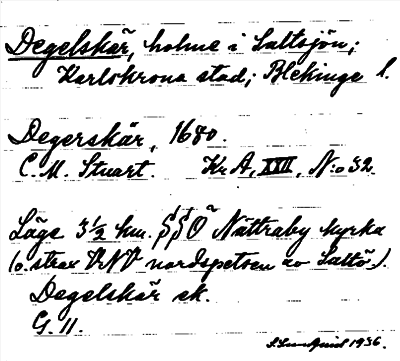 Degelskär, holme i Saltsjön;
Karlskrona stad; Blekinge l.
Degerskär, 1680.
C. M. Stuart. Kr A, XVII, N:o 32.
Läge 3½ km. SSO Nättraby kyrka
(o. strax VNV nordspetsen av Saltö.).
Degelskär ek.
G. 11.
1936.